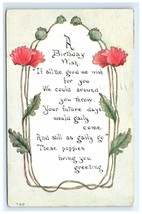 A
Birthday
Wish.
If all the good we wish
for you
We could around
you throw,
Your future days
would gaily
come
And still as gaily go
These poppies
bring you
greeting.